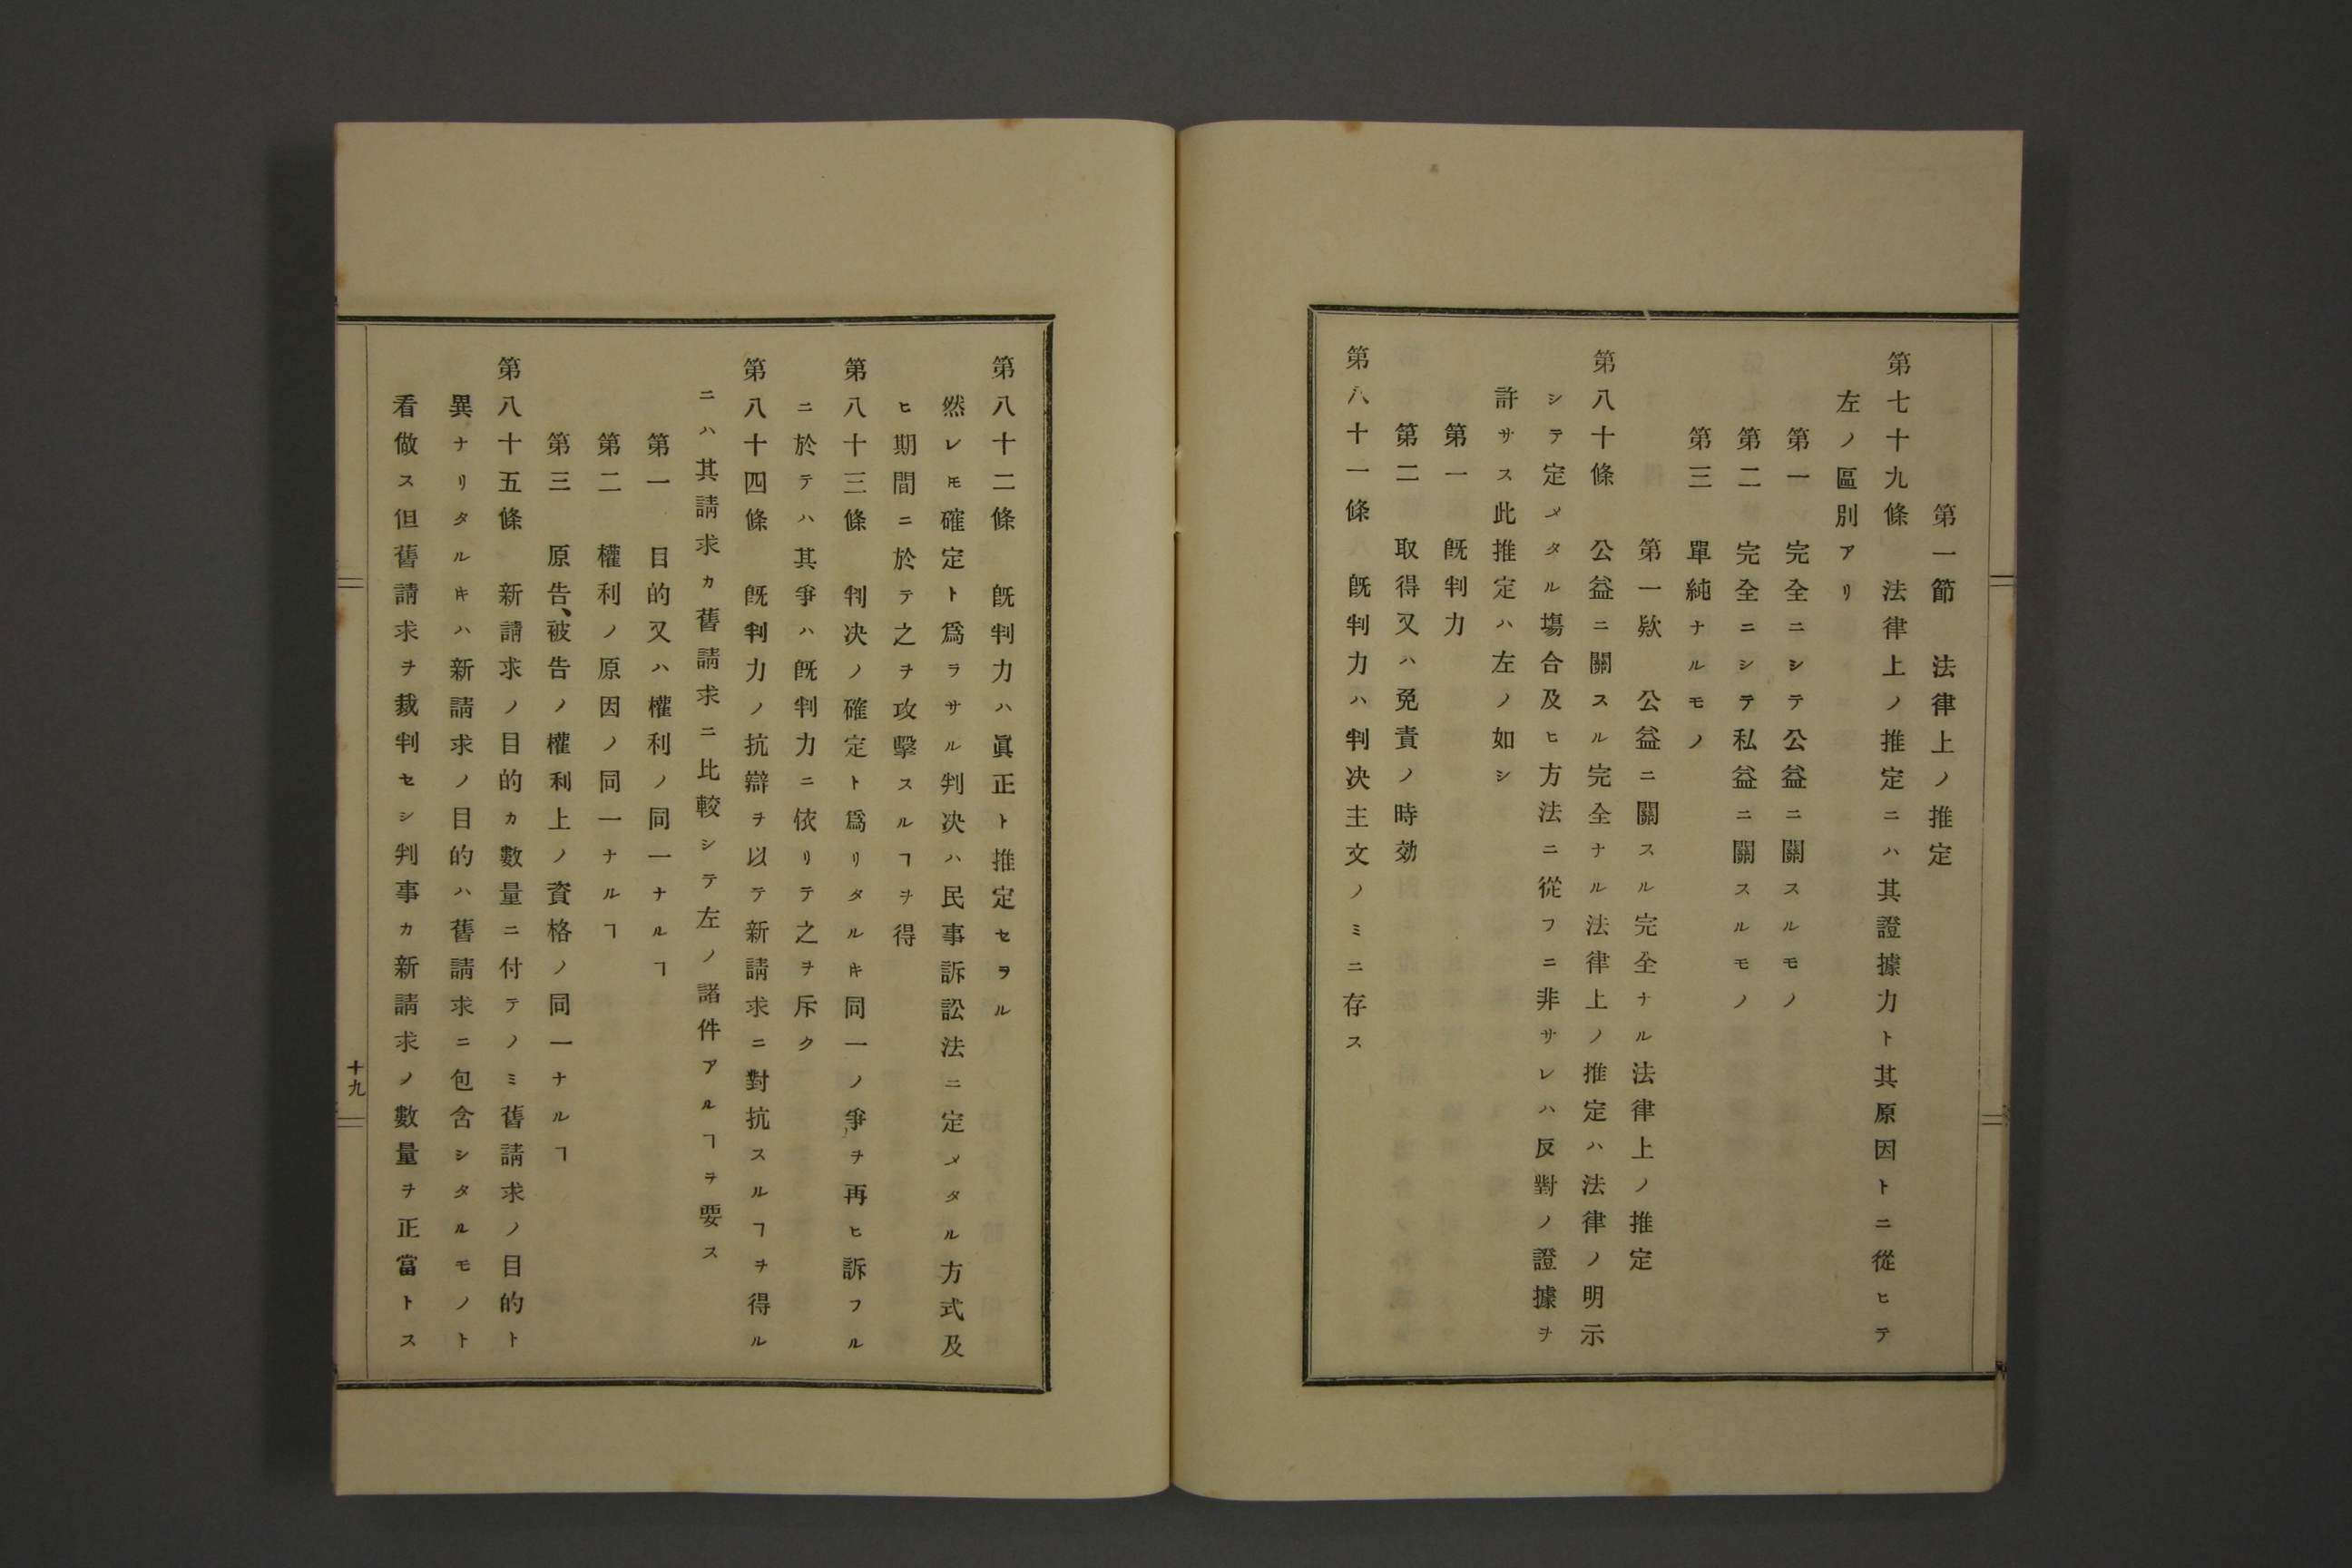 第一節　法律上ノ推定
第七十九條　法律上ノ推定ニハ其證據力ト其原因トニ從ヒテ
左ノ區別アリ
第一　完全ニシテ公益ニ關スルモノ
第二　完全ニシテ私益ニ關スルモノ
第三　單純ナルモノ
第一欵　公益ニ關スル完全ナル法律上ノ推定
第八十條　公益ニ關スル完全ナル法律上ノ推定ハ法律ノ明示
シテ定メタル塲合及ヒ方法ニ從フニ非サレハ反對ノ證據ヲ
許サス此推定ハ左ノ如シ
第一　旣判力
第二　取得又ハ免責ノ時効
第八十一條　旣判力ハ判决主文ノミニ存ス
第八十二條　旣判力ハ眞正ト推定セラル
然レ𪜈確定ト爲ラサル判决ハ民事訴訟法ニ定メタル方式及
ヒ期間ニ於テ之ヲ攻擊スルヿヲ得
第八十三條　判决ノ確定ト爲リタルキ同一ノ爭ヲ再ヒ訴フル
ニ於テハ其爭ハ旣判力ニ依リテ之ヲ斥ク
第八十四條　旣判力ノ抗辯ヲ以テ新請求ニ對抗スルヿヲ得ル
ニハ其請求カ舊請求ニ比較シテ左ノ諸件アルヿヲ要ス
第一　目的又ハ權利ノ同一ナルヿ
第二　權利ノ原因ノ同一ナルヿ
第三　原告、被告ノ權利上ノ資格ノ同一ナルヿ
第八十五條　新請求ノ目的カ數量ニ付テノミ舊請求ノ目的ト
異ナリタルキハ新請求ノ目的ハ舊請求ニ包含シタルモノト
看做ス但舊請求ヲ裁判セシ判事カ新請求ノ數量ヲ正當トス
十九